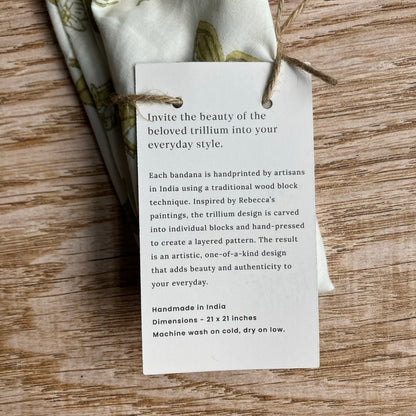 Invite the beauty of the
beloved trillium into your
everyday style.
Each bandana is handprinted by artisans
in India using a traditional wood block
technique. Inspired by Rebecca's
paintings, the trillium design is carved
into individual blocks and hand-pressed
to create a layered pattern. The result
is an artistic, one-of-a-kind design
that adds beauty and authenticity to
your everyday.
Handmade in India
Dimensions - 21 x 21 inches
Machine wash on cold, dry on low.